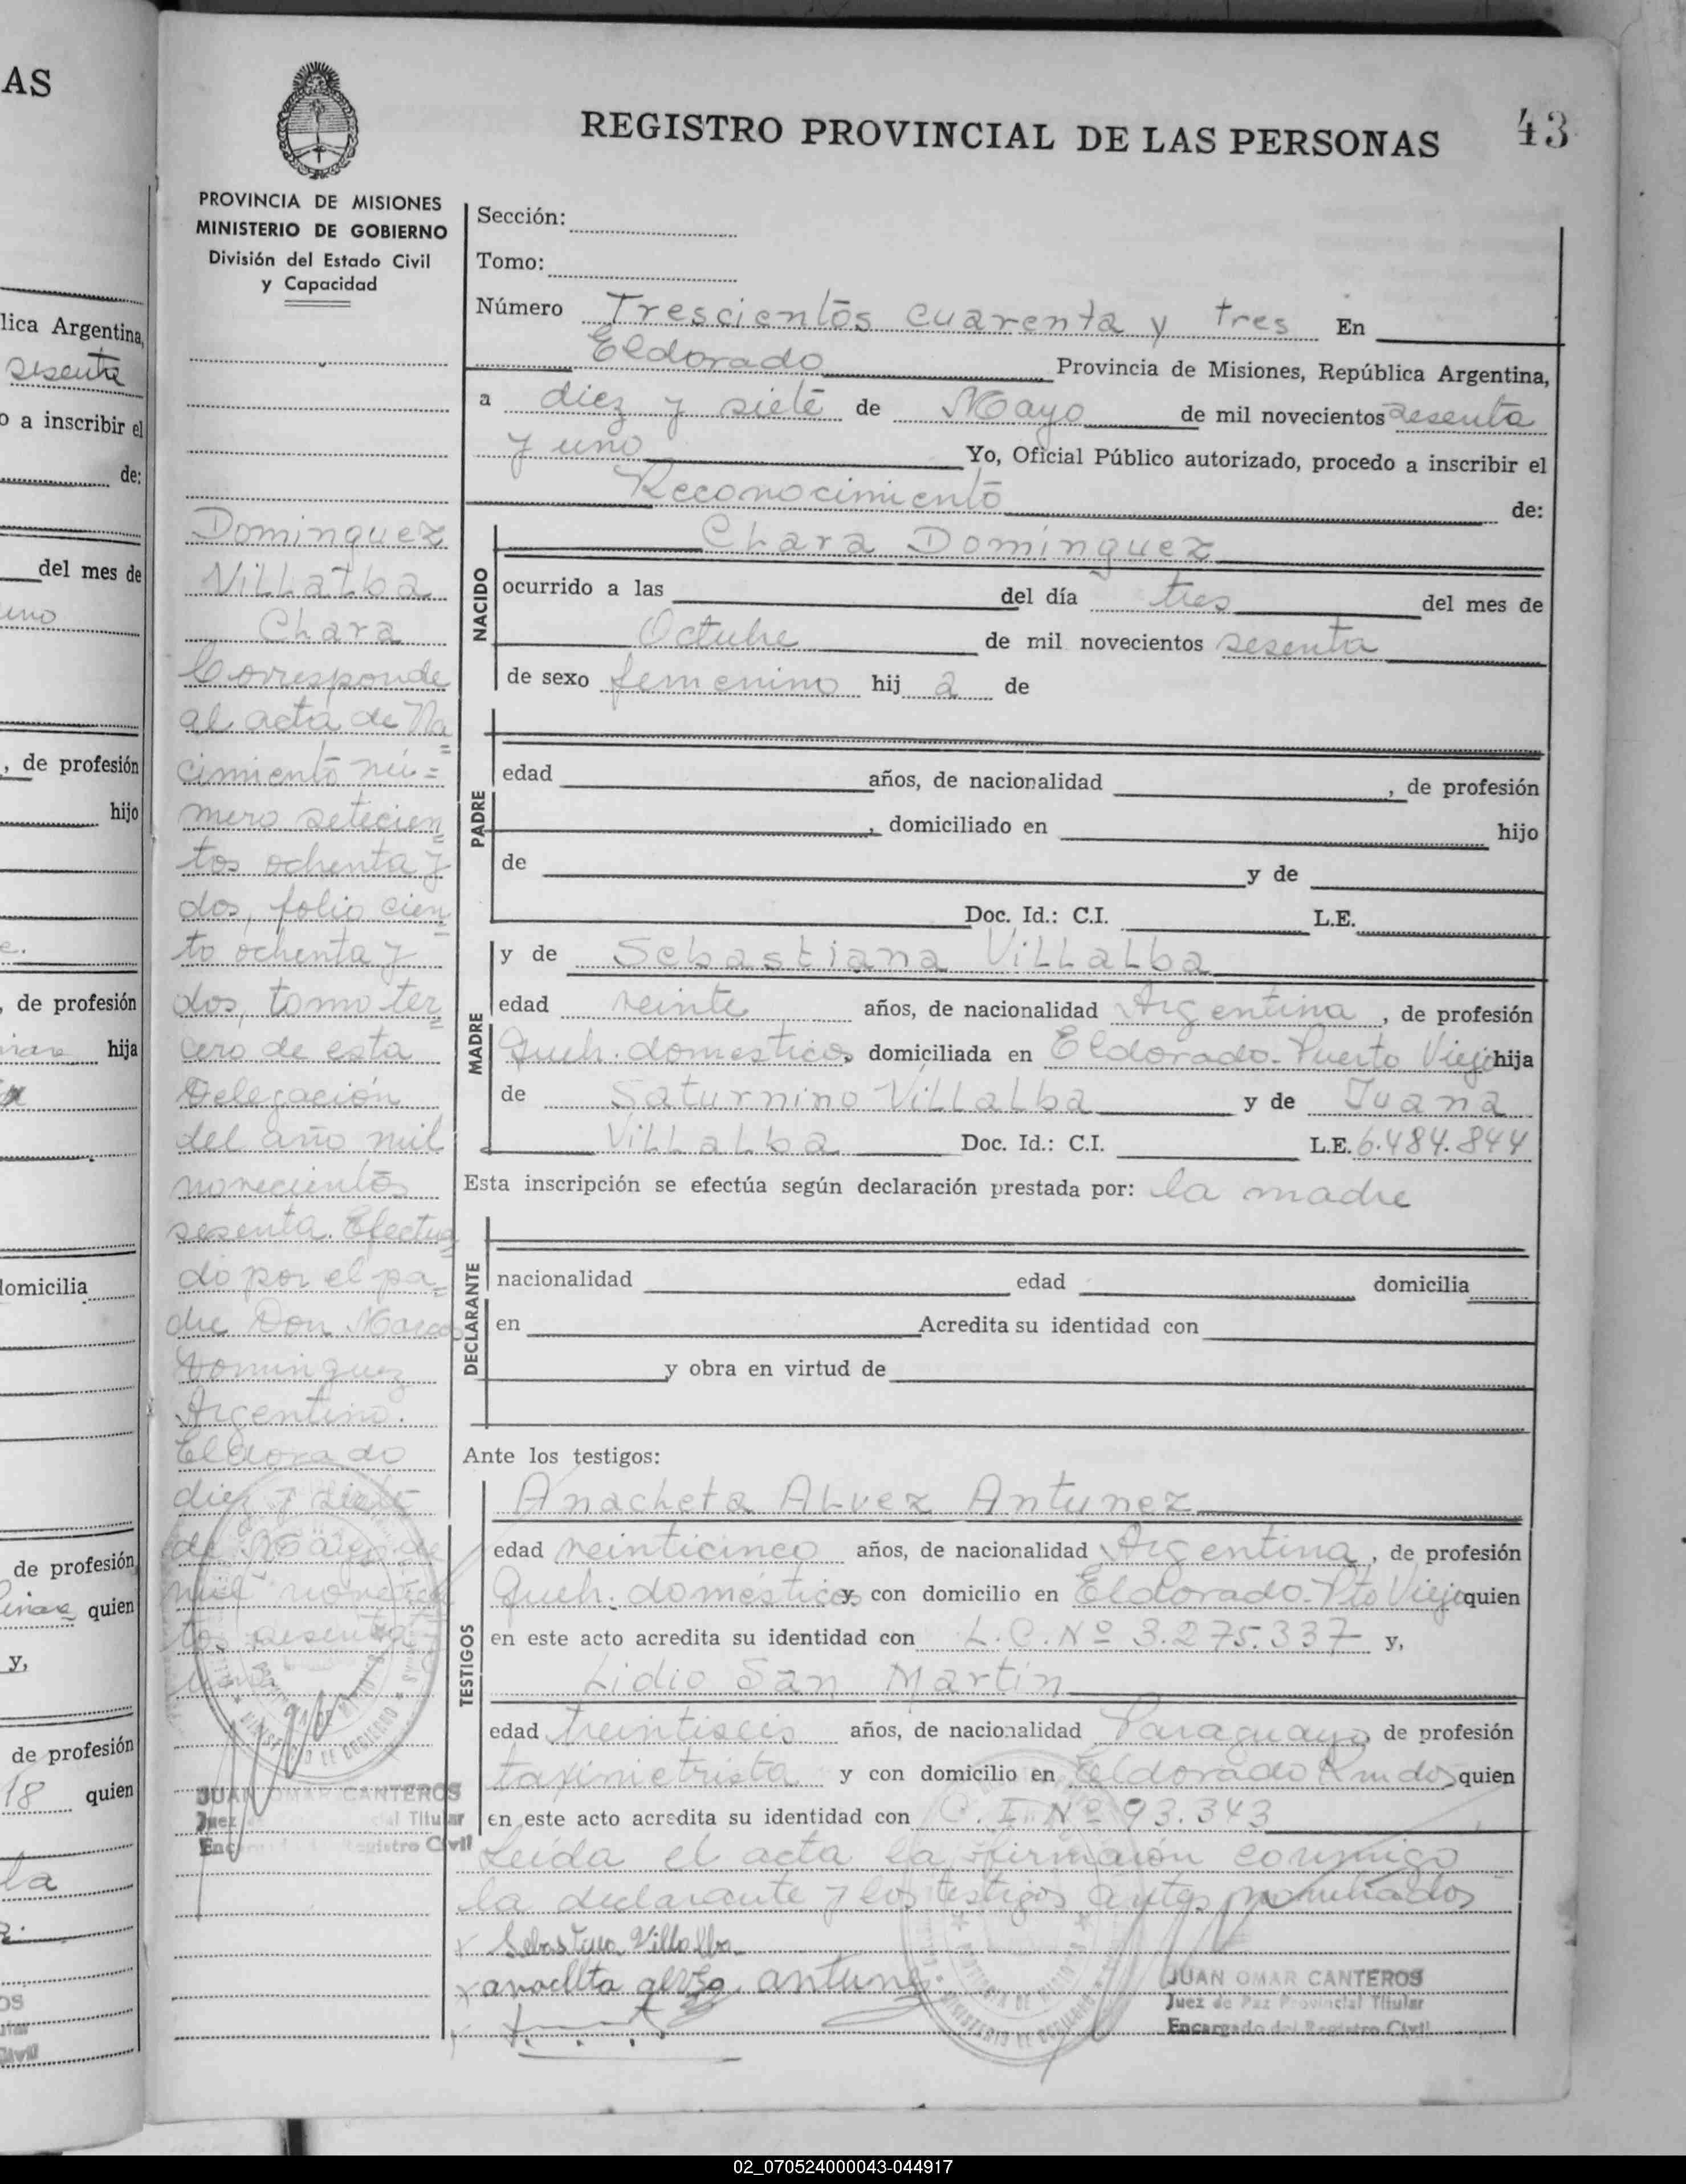 AS
lica Argentina,
sesenta
o a inscribir el
de:
del mes de
uno
, de profesión
hijo
e.
, de profesión
hija
domicilia
de profesión
quien
y,
de profesión
18 quien
la
REGISTRO PROVINCIAL DE LAS PERSONAS 43
PROVINCIA DE MISIONES
MINISTERIO DE GOBIERNO
División del Estado Civil
y Capacidad
Dominguez
Villalba
Chara
Corresponde
al acta de Na
=
cimiento nú=
mero setecien
=
tos ochenta y
dos, folio cien
=
to ochenta y
dos, tomo ter
=
cero de esta
Delegación
del año mil
novecientos
sesenta. Efectua
do por el pa
=
dre Don Marcos
Dominguez
Argentino.
Eldorado
diez y siete
de Mayo de
mil novecien
tos sesenta y
uno
JUAN OMAR CANTEROS
Juez de Paz Provincial Titular
Encargado del Registro Civil
Sección:
Tomo:
Número Trescientos cuarenta y tres En
Eldorado Provincia de Misiones, República Argentina,
a diez y siete de Mayo de mil novecientos sesenta
y uno Yo, Oficial Público autorizado, procedo a inscribir el
Reconocimiento de:
NACIDO
Chara Dominguez
ocurrido a las del día tres del mes de
Octubre de mil novecientos sesenta
de sexo femenino hij a de
PADRE
edad años, de nacionalidad , de profesión
, domiciliado en hijo
de y de
Doc. Id.: C.I. L.E.
MADRE
y de Sebastiana Villalba
edad veinte años, de nacionalidad Argentina , de profesión
Queh. domestico, domiciliada en Eldorado-Puerto Viejo hija
de Saturnino Villalba y de Juana
Villalba Doc. Id.: C.I. L.E. 6.484.844
Esta inscripción se efectúa según declaración prestada por: la madre
DECLARANTE
nacionalidad edad domicilia
en Acredita su identidad con
y obra en virtud de
Ante los testigos:
TESTIGOS
Anacheta Alvez Antunez
edad veinticinco años, de nacionalidad Argentina , de profesión
Queh. domésticos y con domicilio en Eldorado-Pto Viejo quien
en este acto acredita su identidad con L.C.Nº 3.275.337 y,
Lidio San Martin
edad treintiseis años, de nacionalidad Paraguayo, de profesión
taximetrista y con domicilio en Eldorado Km dos, quien
en este acto acredita su identidad con C.I. Nº 93.343
Leida el acta la firmaron conmigo
la declarante y los testigos antes nombrados
x Sebastiana Villalba
x antune
JUAN OMAR CANTEROS
Juez de Paz Provincial Titular
Encargado del Registro Civil
02_070524000043-044917